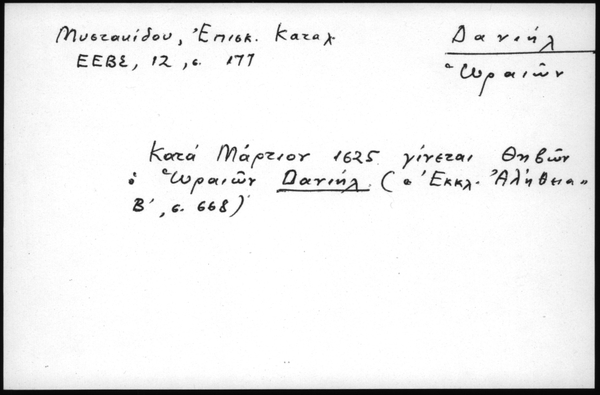 Μυστακίδου, Ἐπισκ. Καταλ.
ΕΕΒΣ, 12, σ. 177
Δανιήλ
Ὠραιῶν
Κατά Μάρτιον 1625 γίνεται Θηβῶν
ὁ Ὠραιῶν Δανιήλ. („Ἐκκλ. Ἀλήθεια"
Β΄, σ. 668)